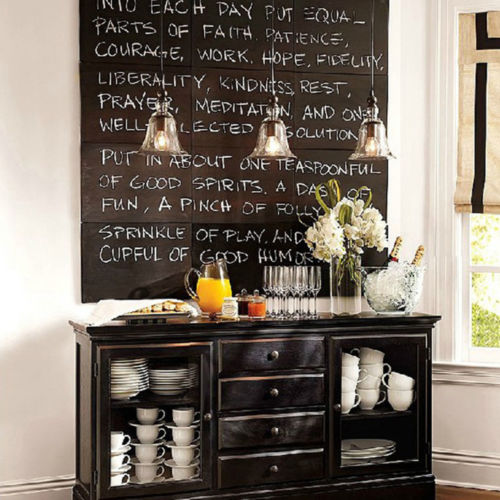 INTO EACH DAY PUT EQUAL
PARTS OF FAITH, PATIENCE,
COURAGE, WORK, HOPE, FIDELITY,
LIBERALITY, KINDNESS, REST,
PRAYER, MEDITATION, AND ONE
WELL SELECTED RESOLUTION.
PUT IN ABOUT ONE TEASPOONFUL
OF GOOD SPIRITS, A DASH OF
FUN, A PINCH OF FOLLY,
SPRINKLE OF PLAY, AND
CUPFUL OF GOOD HUMOR